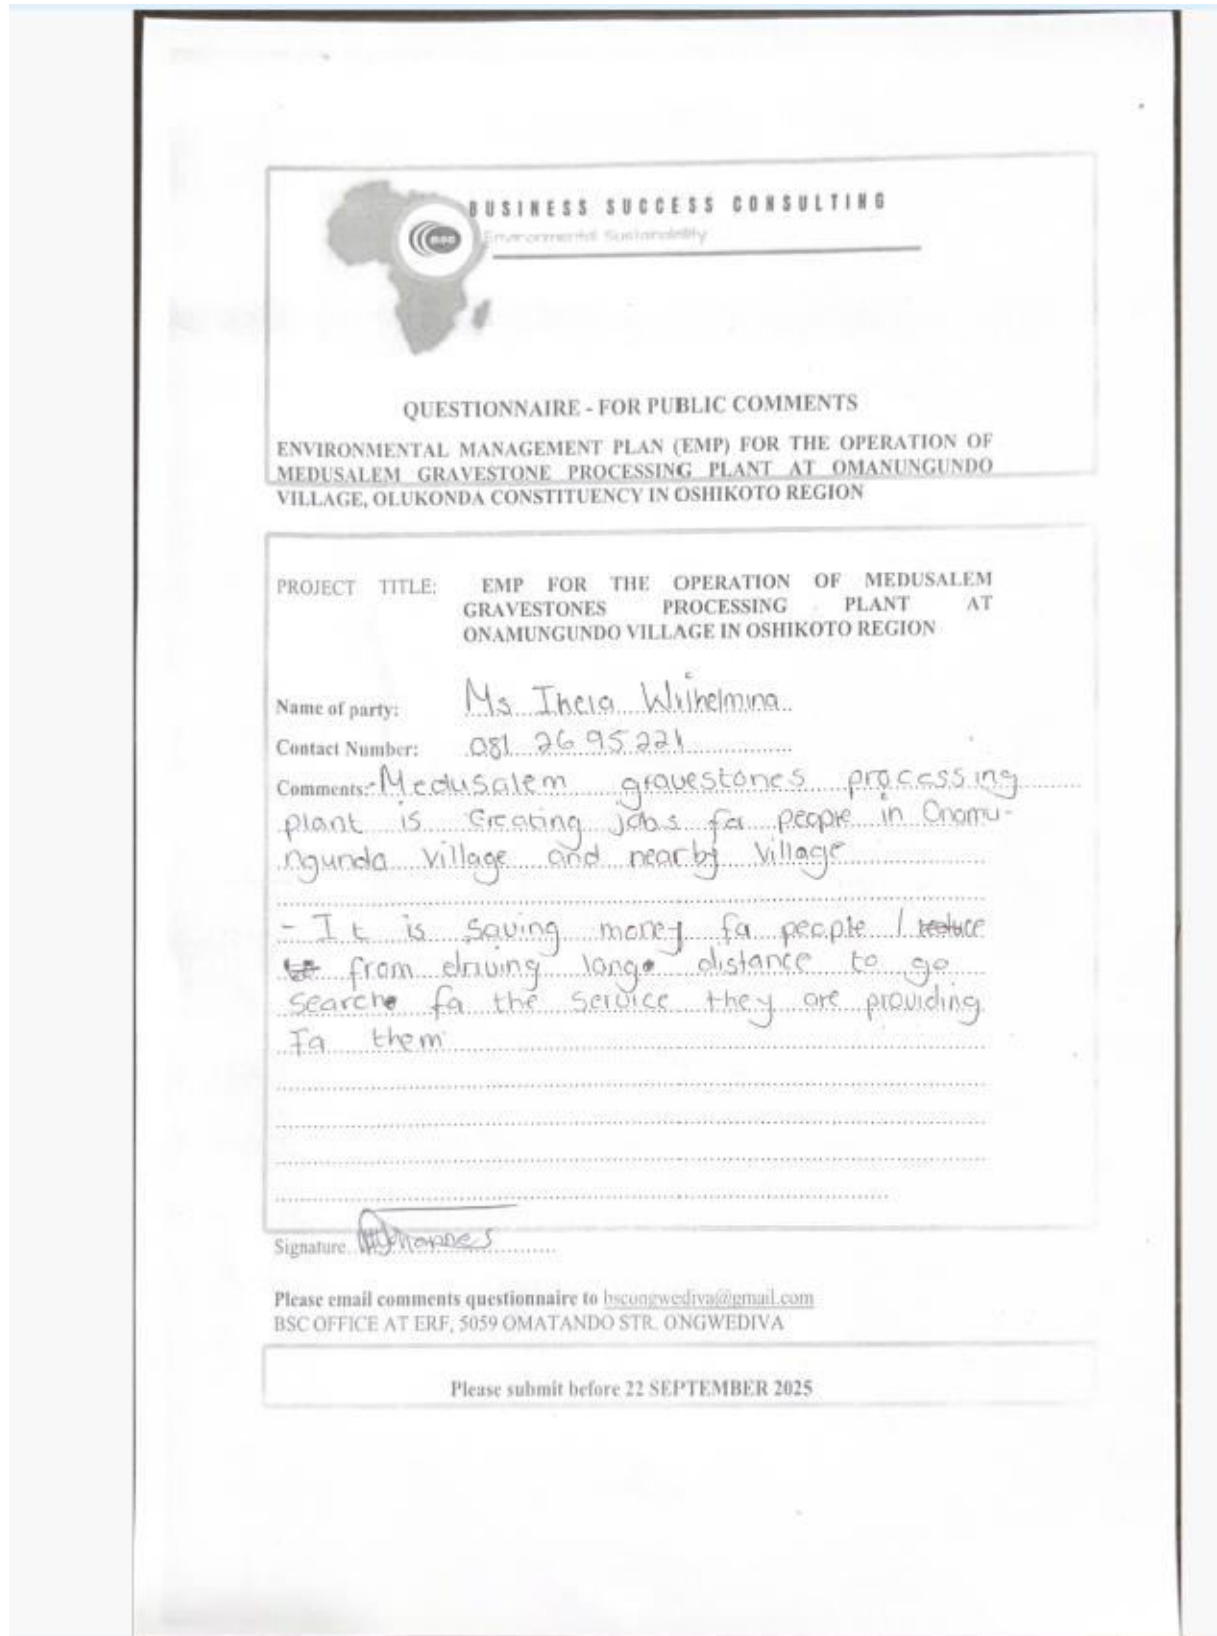 BUSINESS SUCCESS CONSULTING
Environmental Sustainability
QUESTIONNAIRE - FOR PUBLIC COMMENTS
ENVIRONMENTAL MANAGEMENT PLAN (EMP) FOR THE OPERATION OF
MEDUSALEM GRAVESTONE PROCESSING PLANT AT OMANUNGUNDO
VILLAGE, OLUKONDA CONSTITUENCY IN OSHIKOTO REGION
PROJECT TITLE: EMP FOR THE OPERATION OF MEDUSALEM
GRAVESTONES PROCESSING PLANT AT
ONAMUNGUNDO VILLAGE IN OSHIKOTO REGION
Name of party: Ms Wilhelmina
Contact Number: 081 26 95 221
Comments:- Medusalem gravestones processing
plant is creating jobs fa people in Onamu-
ngundo Village and nearby Village
- It is saving money fa people / reduce
from driving long distance to go
search fa the service they are providing
Fa them
Signature
Please email comments questionnaire to bscongwediva@gmail.com
BSC OFFICE AT ERF, 5059 OMATANDO STR. ONGWEDIVA
Please submit before 22 SEPTEMBER 2025